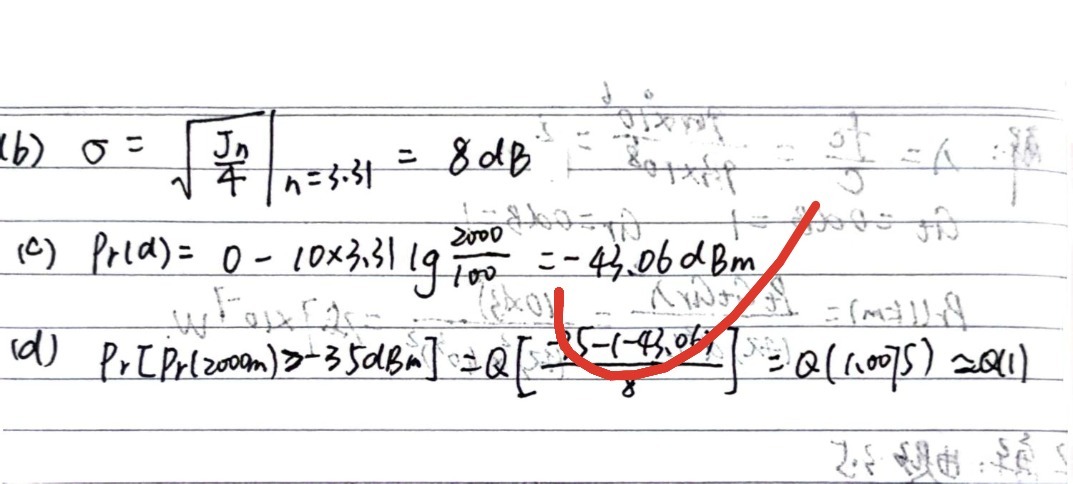 (b) σ = √(Jn/4) | n=3.31 = 8dB
(c) Pr(d) = 0 - 10×3.31 lg 2000/100 = -43.06dBm
(d) Pr[Pr(2000m)≥-35dBm] = Q[(-35-(-43.06))/8] = Q(1.0075) ≃Q(1)